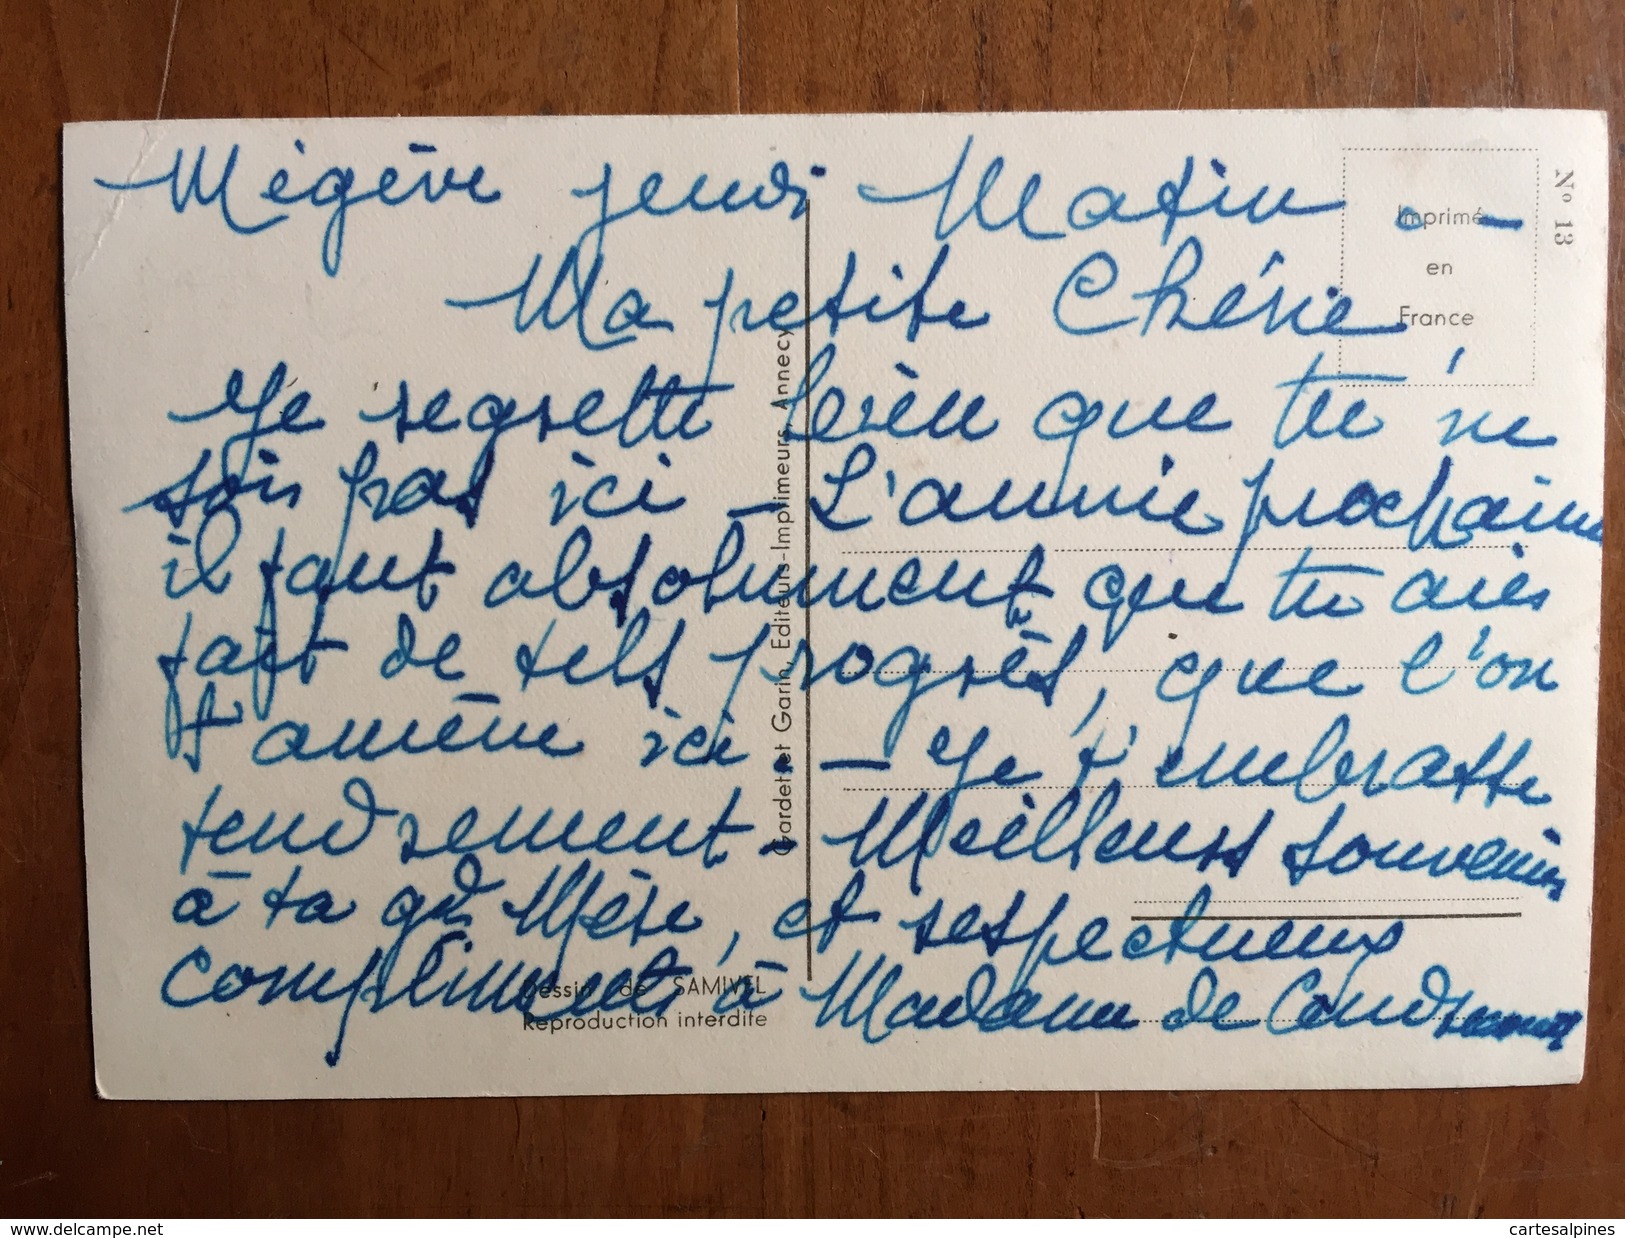 Mégève jeudi Matin -
Ma petite Chérie,
Je regrette bien que tu ne
sois pas ici - L'année prochaine
il faut absolument que tu aies
fait de tels progrès, que l'on
t'amène ici. - Je t'embrasse
tendrement - Meilleurs souvenirs
à ta gde Mère, et respectueux
compliments à Madame de
Imprimé
en
France
N° 13
Gardet et Garin, Editeurs-Imprimeurs, Annecy
Dessin de SAMIVEL
Reproduction interdite
www.delcampe.net
cartesalpines